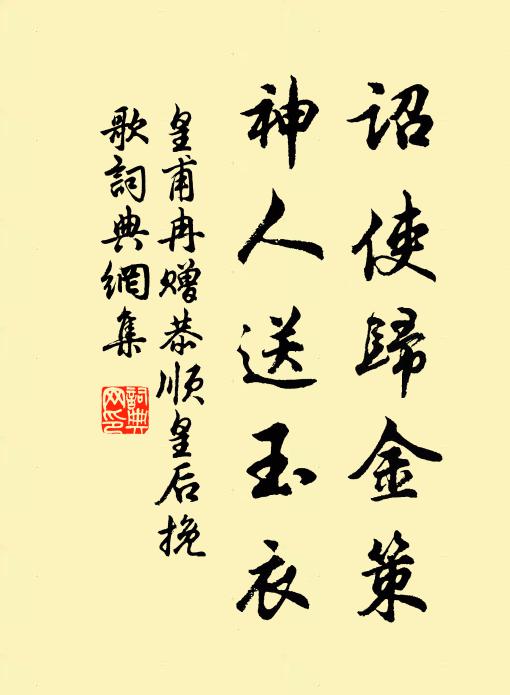 詔使歸金策
神人送玉衣
皇甫冉赠恭順皇后挽
歌詞典網集
詞典
网印